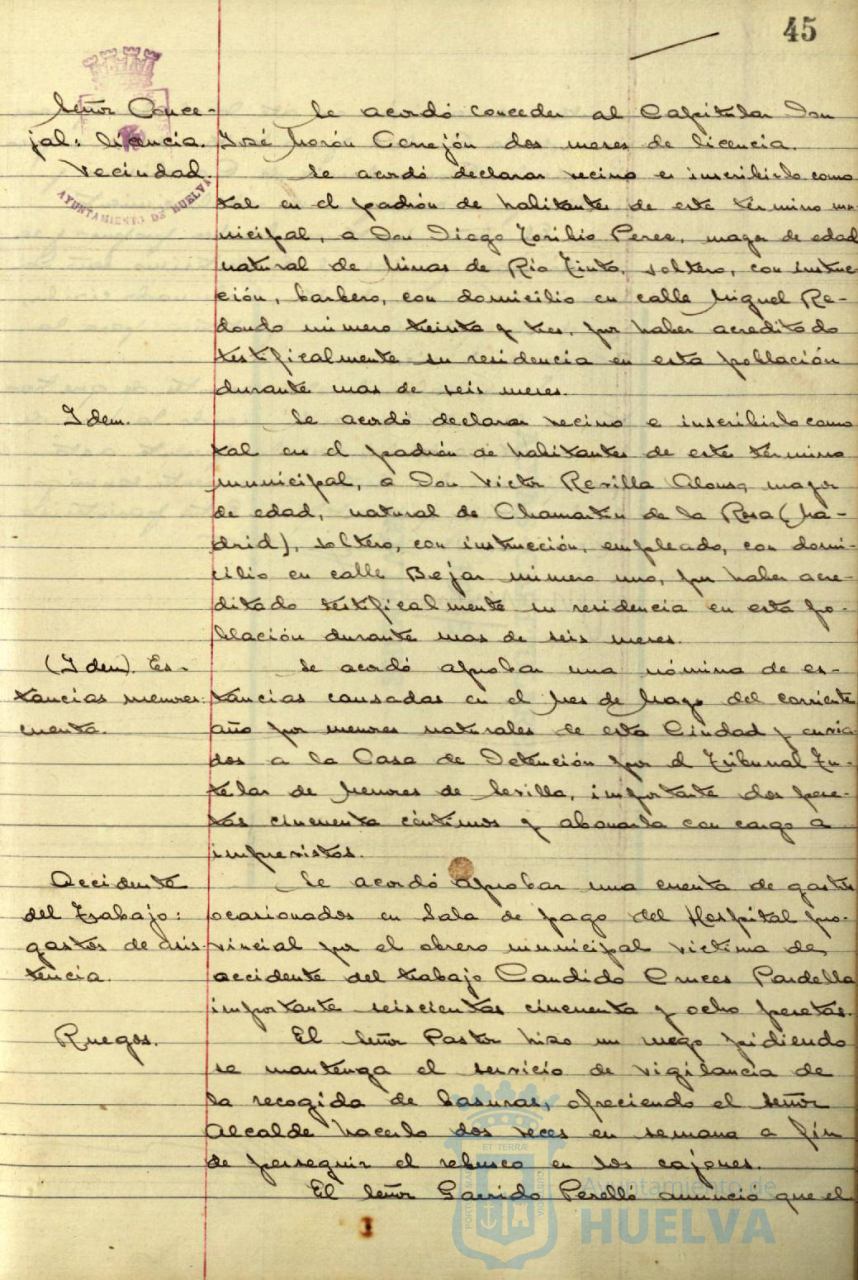 45
Señor Conce-
jal: licencia.
Vecindad.
AYUNTAMIENTO DE HUELVA
Se acordó conceder al Capitular Don
José Morón Cerrejón dos meses de licencia.
Se acordó declarar vecino e inscribirlo como
tal en el padrón de habitantes de este término mu-
nicipal, a Don Diego Toribio Perez, mayor de edad
natural de Minas de Rio Tinto, soltero, con instruc-
ción, barbero, con domicilio en calle Miguel Re-
dondo número treinta y tres, por haber acreditado
testificalmente su residencia en esta población
durante mas de seis meses.
Idem.
Se acordó declarar vecino e inscribirlo como
tal en el padrón de habitantes de este término
municipal, a Don Victor Revilla Alonso, mayor
de edad, natural de Chamartin de la Rosa (Ma-
drid), soltero, con instrucción, empleado, con domi-
cilio en calle Bejar número uno, por haber acre-
ditado testificalmente su residencia en esta po-
blación durante mas de seis meses.
(Idem). Es-
tancias menores:
cuenta.
Se acordó aprobar una nómina de es-
tancias causadas en el mes de Mayo del corriente
año por menores naturales de esta Ciudad y envia-
dos a la Casa de Detención por el Tribunal Tu-
telar de Menores de Sevilla, importante dos pese-
tas cincuenta céntimos y abonarla con cargo a
imprevistos.
Accidente
del Trabajo:
gastos de asis-
tencia.
Se acordó aprobar una cuenta de gastos
ocasionados en Sala de pago del Hospital pro-
vincial por el obrero municipal victima de
accidente del trabajo Candido Cruces Pardella
importante seiscientas cincuenta y ocho pesetas.
Ruegos.
El Señor Pastor hizo un ruego pidiendo
se mantenga el servicio de vigilancia de
la recogida de basuras, ofreciendo el señor
Alcalde hacerlo dos veces en semana a fin
de perseguir el rebusco en los cajones.
El Señor Garrido Perelló anunció que el
Ayuntamiento de
HUELVA